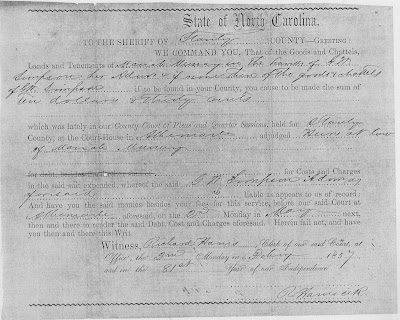 State of North Carolina.
TO THE SHERIFF OF Stanly COUNTY—GREETING:
WE COMMAND YOU, That of the Goods and Chattels,
Lands and Tenements of Mariah Murray in the hands of
Simpson her Admr & if none then of the goods & chattels
of Simpson if so found in your County, you cause to be made the sum of
ten dollars & thirty cents
which was lately in our County Court of Pleas and Quarter Sessions, held for Stanly
County, at the Court-House in Albemarle adjudged Heirs at law
of Mariah Murray
for debt, for Costs and Charges
in the said suit expended, whereof the said Simpson
liable as appears to us of record:
And have you the said monies, besides your fees for this service, before our said Court at
Albemarle aforesaid, on the 2nd Monday in next,
then and there to render the said Debt, Cost and Charges aforesaid. Herein fail not, and have
you then and there this Writ.
Witness, Richard Harris Clerk of our said Court, at
Office the 2nd Monday in Feby 1857
and in the 81st Year of our Independence